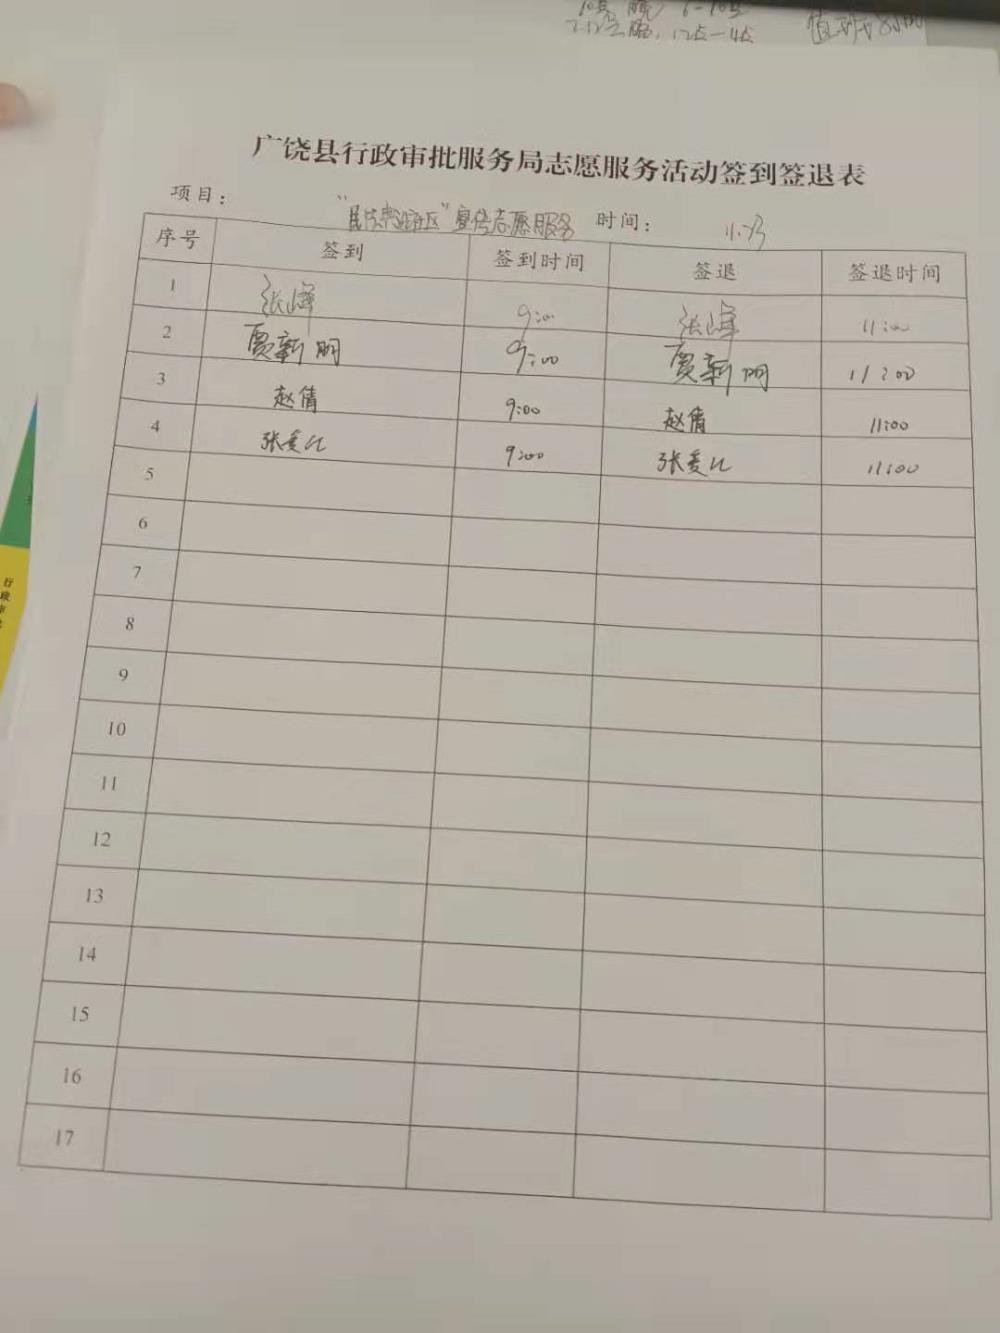 值班
广饶县行政审批服务局志愿服务活动签到签退表
项目： "民法典进社区"宣传志愿服务 时间：
序号 签到 签到时间 签退 签退时间
1 张峰 9:00 张峰 11:00
2 贾新明 9:00 贾新明 11:00
3 赵倩 9:00 赵倩 11:00
4 张爱 9:00 张爱 11:00
5
6
7
8
9
10
11
12
13
14
15
16
17
行
政
审